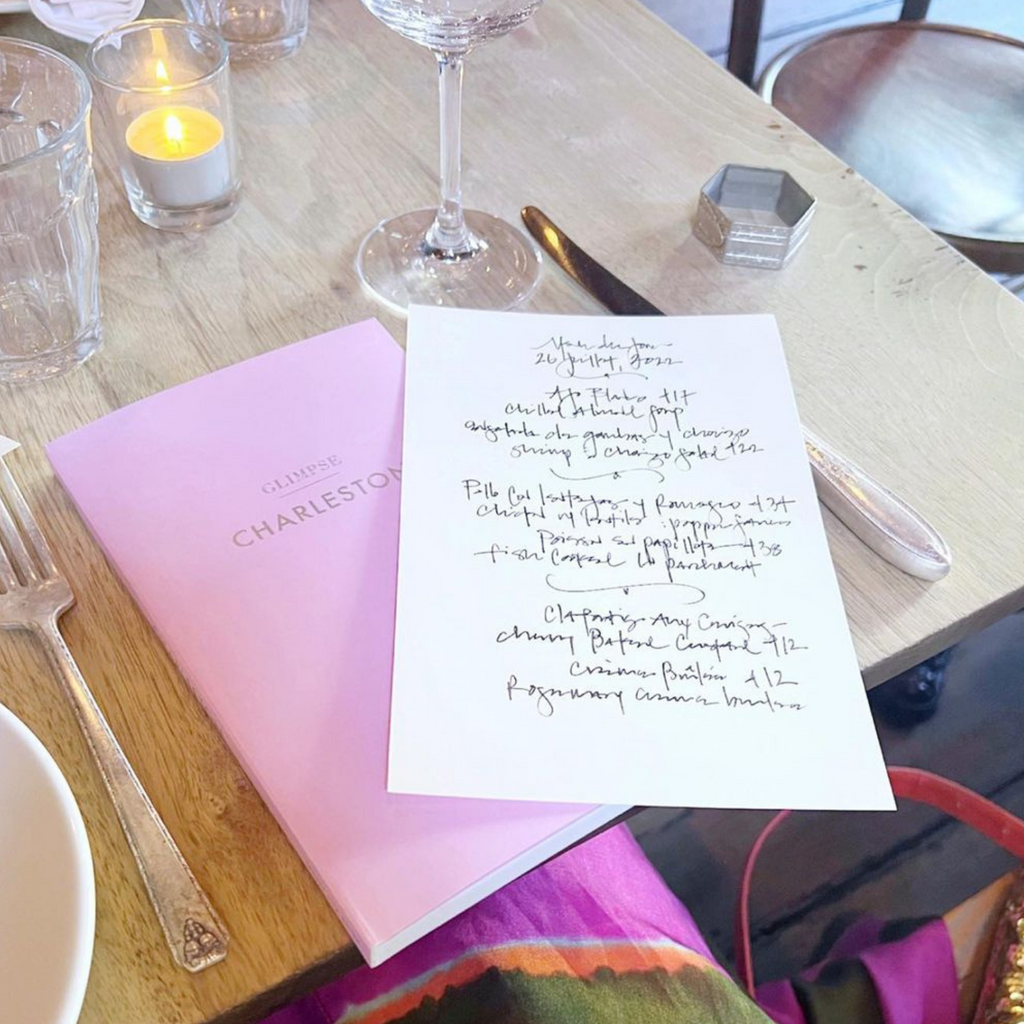 GLIMPSE
CHARLESTON
26 Juillet, 2022
Ajo Blanco +17
Chilled Almond Soup
de gambas y chorizo
shrimp & chorizo salad +22
y Romesco +34
w/
Poisson en papillote +38
fish cooked in parchment
Clafoutis Aux Cerises
cherry Baked Custard +12
Crème Brûlée +12
Rosemary creme brulee